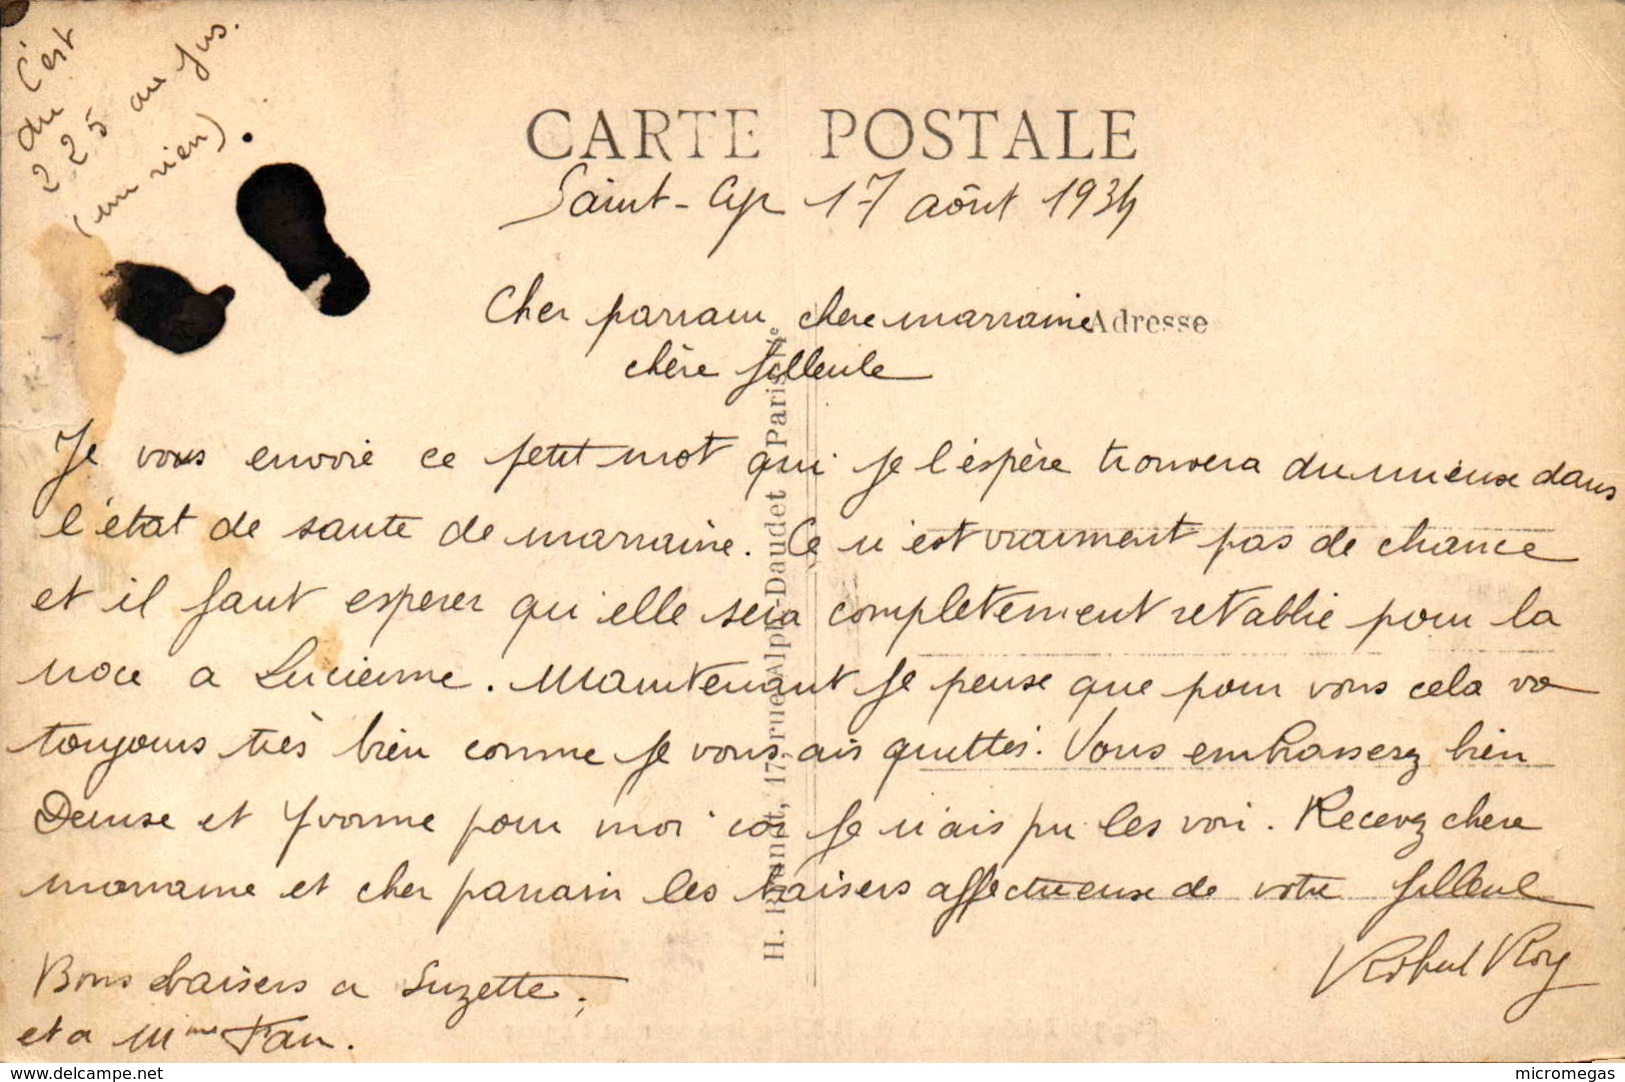 C'est
du
225 au jus.
(un rien)
CARTE POSTALE
Saint-Cyr 17 aôut 1934
Cher parrain, chere marraine
Adresse
chère filleule
Je vous envoie ce petit mot qui je l'éspère trouvera du mieux dans
l'état de sante de marraine. Ce n'est vraiment pas de chance
et il faut esperer qu'elle sera completement retablie pour la
noce a Lucienne. Maintenant je pense que pour vous cela va
toujours très bien comme je vous ais quittés. Vous embrasserez bien
Denise et Yvonne pour moi car je n'ais pu les voir. Recevez chere
marraine et cher parrain les baisers affectueuse de votre filleul
Robert Roy
Bons baisers a Suzette,
et a Mme Fau.
H. Brandt, 17, rue Alph. Daudet Paris
delcampe.net
micromegas